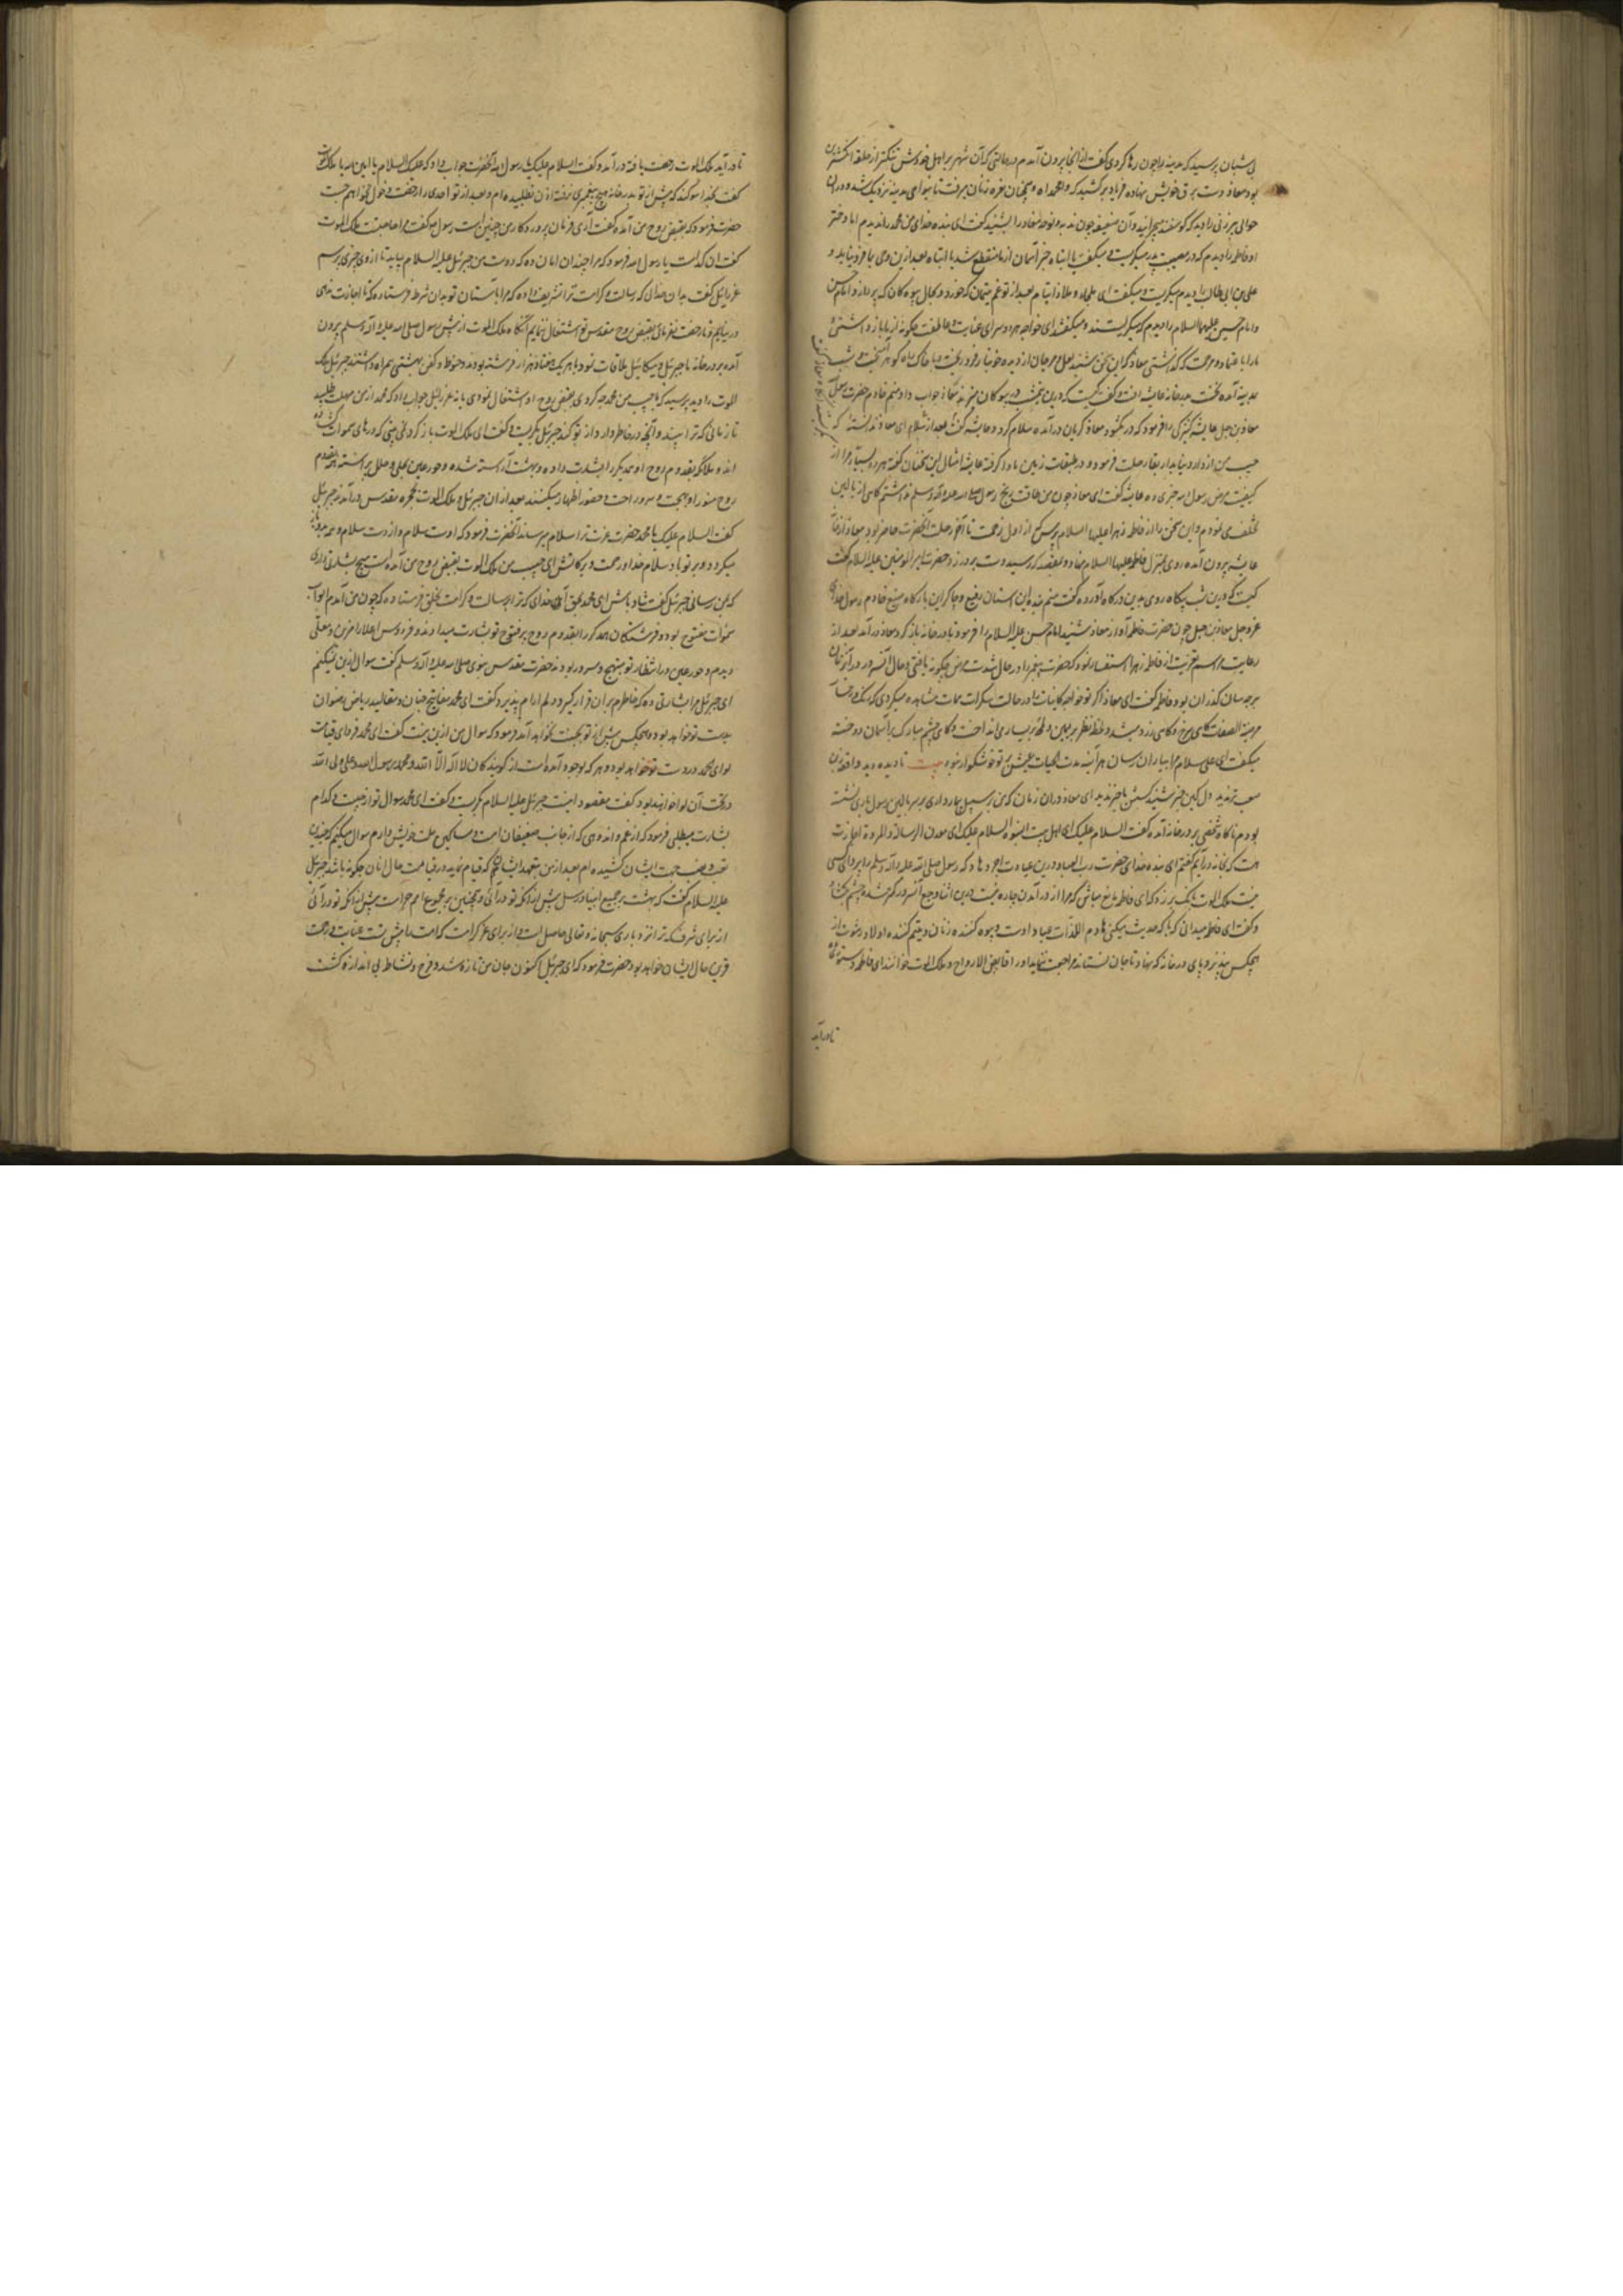 بی شبان پرسید که مدینه را چون رها کردی گفت از انجا بیرون آمدم در حالتی که آن شهر بر اهل خودش تنکتر از حلقه انکشتری
بود معاذ دست بر فرق خویش نهاده فریاد برکشید که وا محمداه و همچنان نعره زنان میرفت تا بسوای مدینه نزدیک شد و دران
حوالی پیرزنی را دید که کوسفند میچرانید و آن ضعیفه چون ندبه و نوحه معاذ را بشنید کفت ای بنده خدای من محمد را ندیدم اما دختر
او فاطمه را دیدم که در مصیبت پدر میکریست و میکفت یا ابتاه خبر آسمان از ما منقطع شد یا ابتاه بعد ازین وحی بما فرو نیاید و
علی بن ابی طالب را دیدم میکریست و میکفت ای ملجاء و ملاذ ایتام بعد از تو غم یتیمان که خورد و بحال بیوه کان که پردازد و امام حسن
و امام حسین علیهما السلام را دیدم که میکریستند و میکفتند ای خواجه هر دو سرای عنایت و عاطفت چکونه از ما باز داشتی
ما را با عتماد و مرحمت که کذاشتی معاذ که این سخن شنید لعل و مرجان از دیده خونبار فرو ریخت و با خاک راه کوهر آمیخت و شب
بمدینه آمده نخست بدر خانه عایشه رفت و کفت کیست که درین نیم شب در بیوه کان میزند معاذ جواب داد منم خادم حضرت رسول
معاذ بن جبل عایشه کنیزکی را فرمود که در بکشود معاذ کریان درآمده سلام کرد و عایشه کفت بعد از سلام ای معاذ ندانسته که
حبیب من از دار دنیا بدار بقا رحلت فرمود و در طبقات زمین ماوا کرفته عایشه امثال این سخنان کفته هر دو بسیار
کیفیت مرض رسول الله خبری ده عایشه کفت ای معاذ چون من طاقت رنج رسول صلی الله علیه و آله و سلم نداشتم کاهی از بالین
تخلف می نمودم و این سخن را از فاطمه زهرا علیها السلام پرس که از اول زحمت تا آخر رحلت آنحضرت حاضر بود معاذ از خانه
عایشه بیرون آمده روی بمنزل فاطمه علیها السلام نهاد و بمقصد که رسید دست بر در زد حضرت امیر المومنین علیه السلام کفت
کیست که درین شب بیکاه روی بدین درکاه آورده کفت منم بنده این آستان رفیع و چاکر این بارکاه منیع خادم رسول خدای
عز و جل معاذ بن جبل چون حضرت فاطمه آواز معاذ شنید امام حسن علیه السلام را فرمود تا در خانه باز کرد معاذ درآمد بعد از
رعایت مراسم تعزیت از فاطمه زهرا استفسار نمود که حضرت پیغمبر را در حال شدت مرض چکونه یافتی و حال آنسرور در آنزمان
بر چه سان کذران بود فاطمه کفت ای معاذ اکر تو خواجه کاینات را در حالت سکرات ممات مشاهده میکردی که رنک رخسار
کاهی سرخ و کاهی زرد میشد و لحظه نظر بر یمین و لمحه بر یسار می انداخت و کاهی چشم مبارک بر آسمان دوخته
میکفت ای علی سلام مرا بیاران رسان هر آینه مدت الحیات عیش بر تو خوشکوار نبود بیت تا دیده دید واقعه زین
صعب تر ندید دل کین خبر شنید کسش با خبر ندید ای معاذ دران زمان که من بر سبیل بیمار داری بر سر بالین رسول باری نشسته
بودم ناکاه شخصی بر در خانه آمده کفت السلام علیک ای اهل بیت النبوه السلام علیک ای معدن الرساله و المروة اجازت
هست که بخانه درآیم کفتم ای بنده خدای حضرت رب العباد درین عیادت اجر دهاد که رسول صلی الله علیه و آله و سلم را پروای کسی
نیست ملک الموت بانک بر زد که ای فاطمه مانع مباش که مرا از درآمدن چاره نیست درین اثنا وجع آنسرور کمتر شده چشم بکشاد
و کفت ای فاطمه میدانی که با که حدیث میکنی هادم اللذات عباد اوست و بیوه کننده زنان و یتیم کننده اولاد رشوت از
هیچکس نپذیرد و پای در خانه که نهاد تا جان نستاند مراجعت ننماید او را قابض الارواح و ملک الموت خوانند ای فاطمه دستوری ده
تا درآید
تا درآید ملک الموت رخصت یافته درآمد و کفت السلام علیک یا رسول الله آنحضرت جواب داد که علیک السلام یا امین الله یا ملک الموت
کفت بخدا سوکند که پیش از تو بدر خانه هیچ پیغمبری نرفته اذن نطلبیده ام و بعد از تو احدی را رخصت دخول نخواهم جست
حضرت فرمود که بقبض روح من آمده کفت آری فرمان پروردکار من چنین است رسول الله کفت مرا حاجتیست ملک الموت
کفت ان کدامست یا رسول الله فرمود که مرا چندان امان ده که دوست من جبرئیل علیه السلام بیاید تا از وی چیزی پرسم
عزرائیل کفت بدان خدائی که رسالت و کرامت ترا تشریف داده که مرا بآستان تو بدان شرط فرستاده که تا اجازت ندهی
در نیایم و تا رخصت نفرمائی بقبض روح مقدس تو اشتغال ننمایم آنکاه ملک الموت از پیش رسول صلی الله علیه و آله و سلم بیرون
آمده بر در خانه با جبرئیل و میکائیل ملاقات نمود با هر یک هفتاد هزار فرشته بودند و حنوط و کفن بهشتی همراه داشتند جبرئیل ملک
الموت را دید پرسید که با حبیب من محمد چه کردی بقبض روح او اشتغال نمودی یا نه عزرائیل جواب داد که محمد از من مهلت طلبید
تا زمانی که ترا بیند و آنچه در خاطر دارد از تو کند جبرئیل بکریست و کفت ای ملک الموت باز کرد نمی بینی که درهای سموات کشاده
اند و ملائکه بقدوم روح او یکدیکر را بشارت داده و بهشت آراسته شده و حور عین بحلی و حلل پیراسته بمقدم
روح منور او بهجت و سرور راحت و حضور اظهار میکنند بعد ازان جبرئیل و ملک الموت بحجره مقدس درآمدند جبرئیل
کفت السلام علیک یا محمد حضرت عزت ترا سلام میرساند آنحضرت فرمود که اوست سلام و ازوست سلام و همه بدو باز
میکردد و بر تو باد سلام خدا و رحمت و برکاتش ای حبیب من ملک الموت بقبض روح من آمده است هیچ بشارتی داری
که بمن رسانی جبرئیل کفت شاد باش ای محمد بحق آن خدای که ترا برسالت و کرامت بخلق فرستاده که چون من آمدم ابواب
سموات مفتوح بود و فرشتکان یکدیکر را بقدوم روح پر فتوح تو بشارت میدادند و فردوس اعلا را مزین و معلی
دیدم و حور عین در انتظار تو مبتهج و مسرور بودند حضرت مقدس نبوی صلی الله علیه و آله و سلم کفت سوال ازین نمیکنم
ای جبرئیل مرا بشارتی ده که خاطرم بران قرار کیرد و دلم ارام پذیرد کفت ای محمد مفاتیح جنان و مقالید ریاض رضوان
بدست تو خواهد بود و هیچکس پیش از تو بجنت نخواهد آمد فرمود که سوال من ازین نیست کفت ای محمد فردای قیامت
لوای محمد در دست تو خواهد بود و هر که بوجود آمده است از کویندکان لا اله الا الله و محمد رسول الله و علی ولی الله
در تحت آن لوا خواهند بود کفت مقصود اینست جبرئیل علیه السلام بکریست و کفت ای محمد سوال تو از چیست و کدام
بشارت میطلبی فرمود که از غم و اندوهی که از جانب ضعیفان امت و مساکین ملت خویش دارم سوال میکنم که چندین
تعب و نصب جهت ایشان کشیده ام بعد از من بتعهد ایشان که قیام نماید در قیامت حال انان چکونه باشد جبرئیل
علیه السلام کفت که بهشت بر جمیع انبیاء و رسل پیش از آنکه تو درآئی و همچنین بر مجموع امم حرامست پیش از آنکه تو درآئی
از برای شرفی که ترا نزد باری سبحانه و تعالی حاصل است و از برای عز کرامت که امت را پیش تست عنایت و رحمت
قرین حال ایشان خواهد بود حضرت فرمود که ای جبرئیل اکنون جان من تازه شد و فرح و نشاط بی اندازه کشت